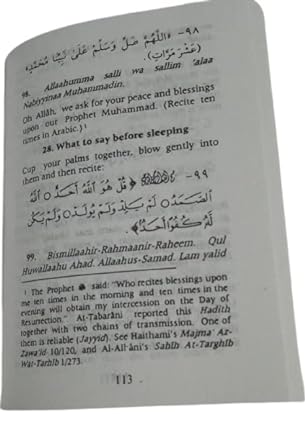 ٩٨- «اللَّهُمَّ صَلِّ وَسَلِّمْ عَلَى نَبِيِّنَا مُحَمَّدٍ»
(عَشْرَ مَرَّاتٍ).
98. Allaahumma salli wa sallim 'alaa
Nabiyyinaa Muhammadin.
Oh Allah, we ask for your peace and blessings
upon our Prophet Muhammad. (Recite ten
times in Arabic.)¹
28. What to say before sleeping
Cup your palms together, blow gently into
them and then recite:
٩٩- ﴿قُلْ هُوَ اللَّهُ أَحَدٌ ۝ اللَّهُ
الصَّمَدُ ۝ لَمْ يَلِدْ وَلَمْ يُولَدْ ۝ وَلَمْ يَكُنْ
لَهُ كُفُوًا أَحَدٌ﴾.
99. Bismillaahir-Rahmaanir-Raheem. Qul
Huwallaahu Ahad. Allaahus-Samad. Lam yalid
¹ The Prophet ﷺ said: "Who recites blessings upon
me ten times in the morning and ten times in the
evening will obtain my intercession on the Day of
Resurrection." At-Tabarâni reported this Hadith
together with two chains of transmission. One of
them is reliable (Jayyid). See Haithami's Majma' Az-
Zawa'id 10/120, and Al-Albâni's Sahîb At-Targhîb
Wat-Tarhîb 1/273.
113